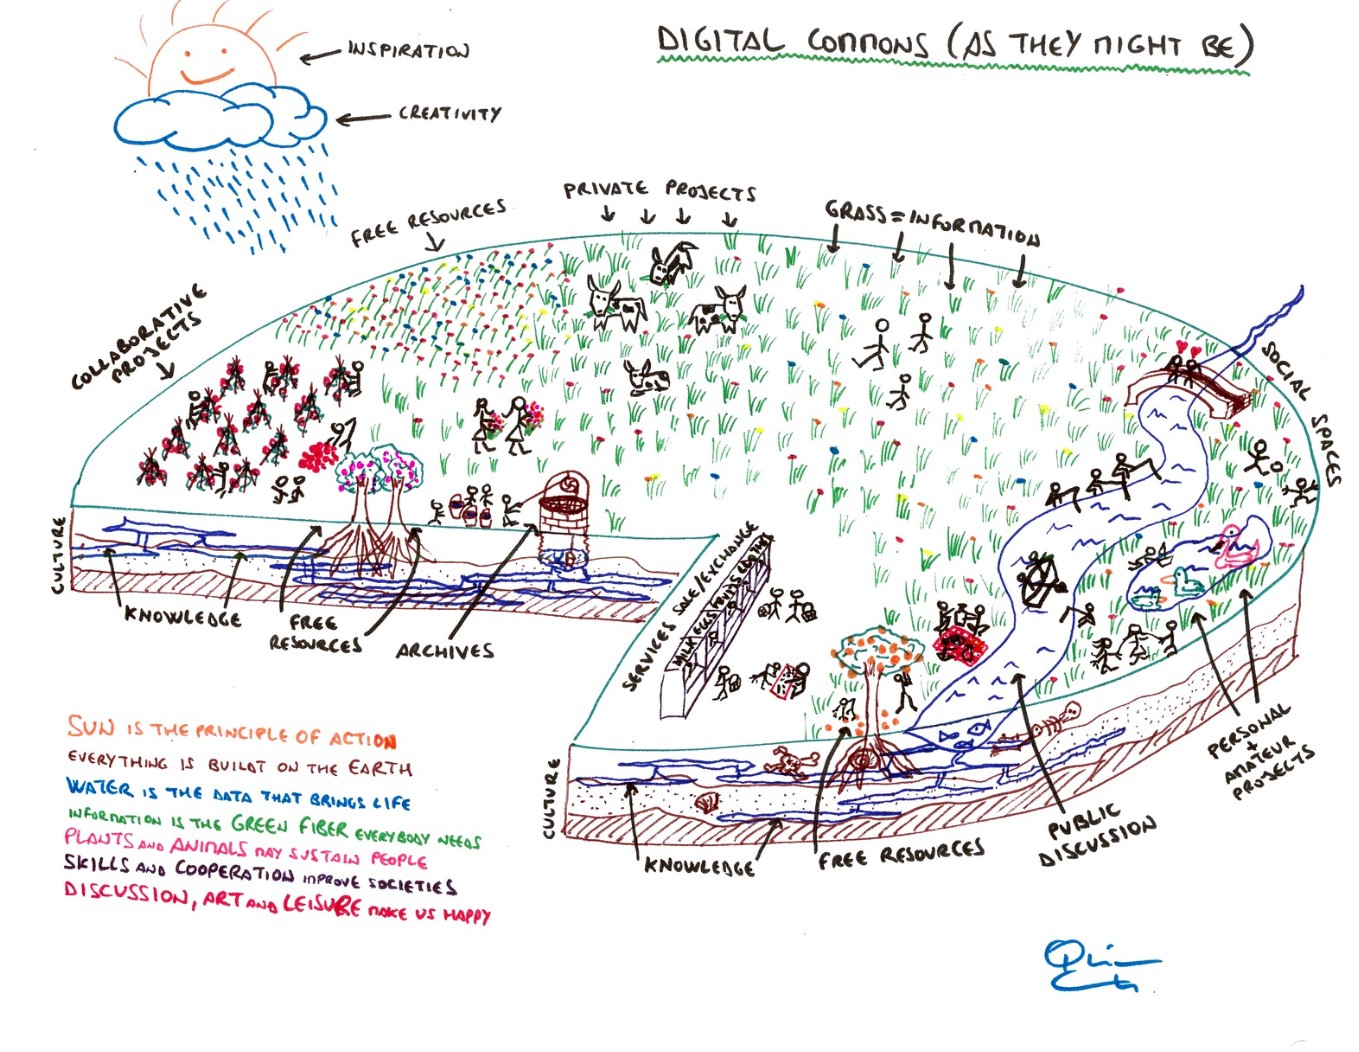 DIGITAL COMMONS (AS THEY MIGHT BE)
INSPIRATION
CREATIVITY
PRIVATE PROJECTS
FREE RESOURCES
GRASS = INFORMATION
COLLABORATIVE
PROJECTS
SOCIAL SPACES
CULTURE
KNOWLEDGE
FREE
RESOURCES
ARCHIVES
SERVICES SALE/EXCHANGE
MILK EGGS
CULTURE
KNOWLEDGE
FREE RESOURCES
PUBLIC
DISCUSSION
PERSONAL
+
AMATEUR
PROJECTS
SUN IS THE PRINCIPLE OF ACTION
EVERYTHING IS BUILDT ON THE EARTH
WATER IS THE DATA THAT BRINGS LIFE
INFORMATION IS THE GREEN FIBER EVERYBODY NEEDS
PLANTS AND ANIMALS MAY SUSTAIN PEOPLE
SKILLS AND COOPERATION IMPROVE SOCIETIES
DISCUSSION, ART AND LEISURE MAKE US HAPPY